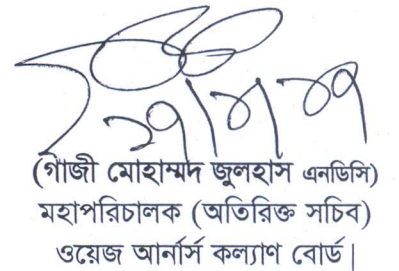 (গাজী মোহাম্মদ জুলহাস এনডিসি)
মহাপরিচালক (অতিরিক্ত সচিব)
ওয়েজ আর্নার্স কল্যাণ বোর্ড।